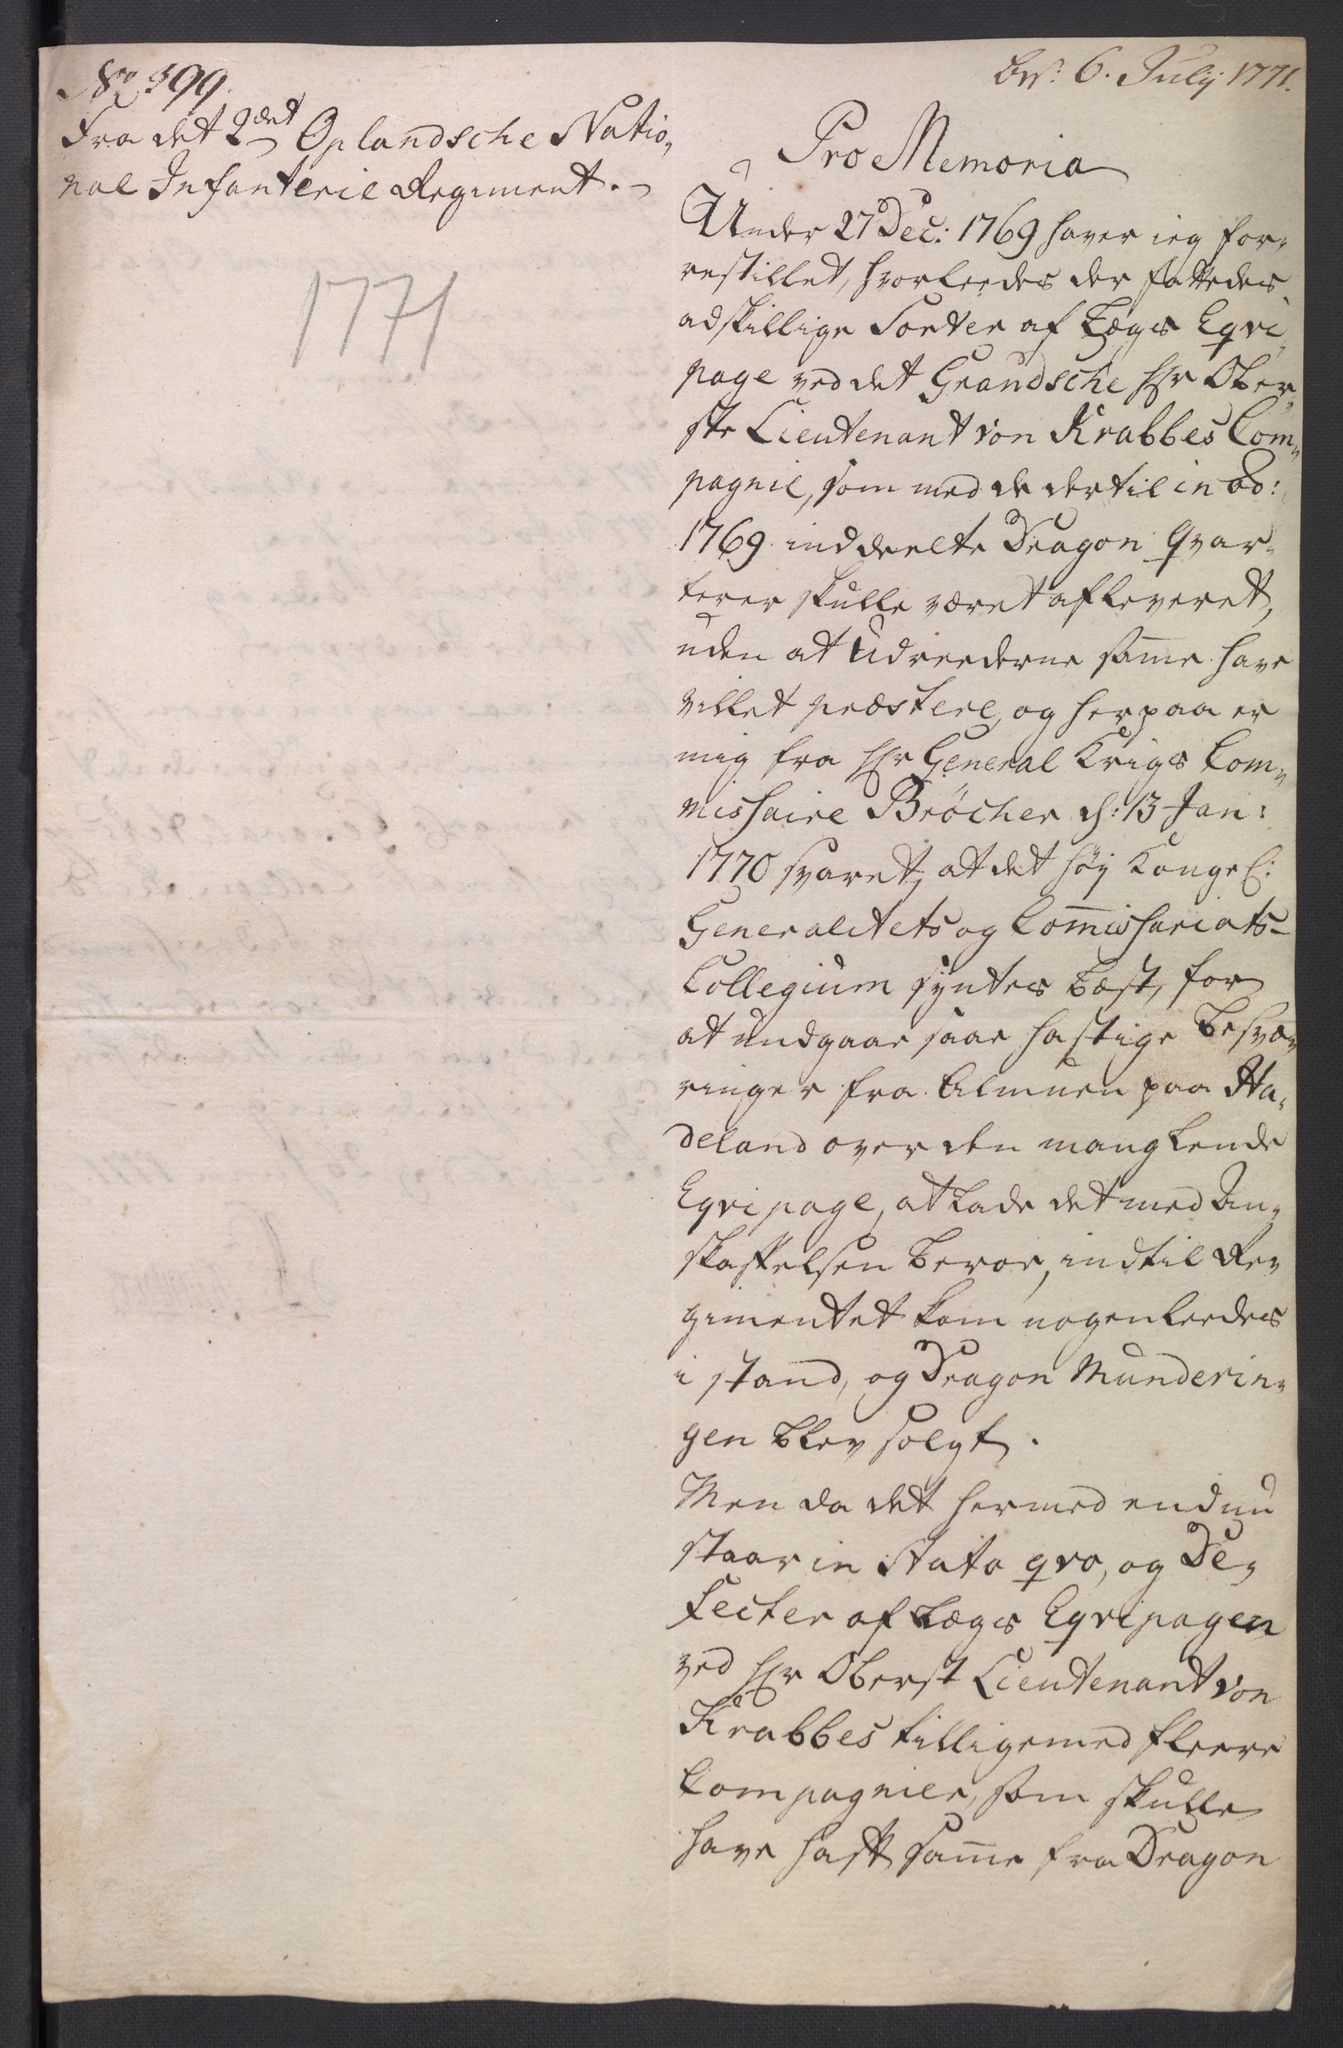 No 399.
Fra det 2det Oplandsche Natio-
nal Infanterie Regiment.
1771
bs: 6. Julij 1771.
Pro Memoria
Under 27 Dec: 1769 haver ieg for-
restillet, hvorleedes der fattedes
adskillige Sorter af Lægs Eqvi-
page ved det Grandsche Hr Ober-
ste Lieutenant von Krabbes Com-
pagnie, som med de dertil in 8b:
1769 inddeelte Dragon Qvar-
terer skulle været afleveret,
uden at Udreederne samme have
villet præstere, og herpaa er
mig fra Hr General Krigs Com-
missaire Bröcher d: 13 Jan:
1770 svaret, at det høy Kongel:
Generalitets og Commissariats-
Collegium syntes bæst, for
at undgaae saae hastige besvæ-
ringer fra Almuen paa Ha-
deland over den manglende
Eqvipage, at lade det med An-
skaffelsen beroe, indtil Re-
gimentet kom nogenleedes
i stand, og Dragon Munderin-
gen blev solgt.
Men da det hermed endnu
staar in Statu qvo, og De-
fecter af Lægs Eqvipagen
ved Hr Oberst Lieutenant von
Krabbes tilligemed fleere
Compagnier, som skulle
have haft samme fra Dragon